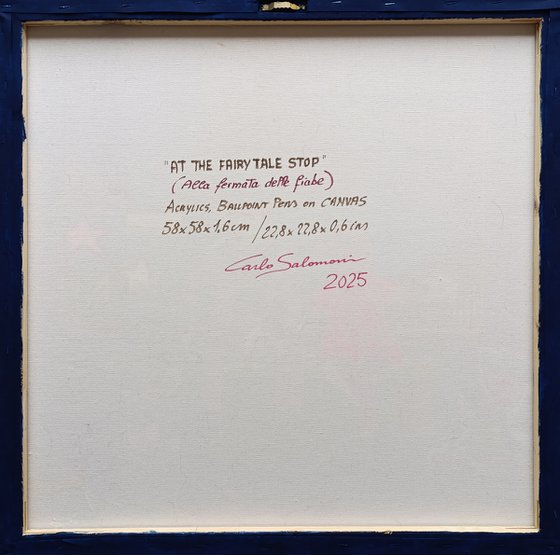 "AT THE FAIRY TALE STOP"
(Alla fermata delle fiabe)
ACRYLICS, BALLPOINT PENS on CANVAS
58x58x1,6 cm / 22,8x22,8x0,6 ins
Carlo Salomoni
2025